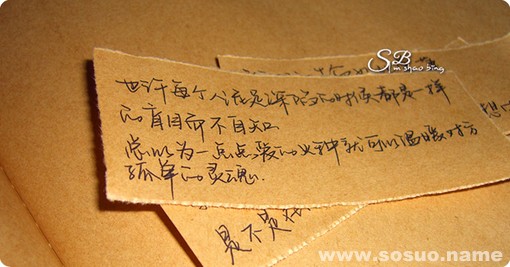 SB
Sun shao bing
也许每个人在是深陷的时候都是一样
的盲目而不自知
总以为一点点爱的火种就可以温暖对方
孤单的灵魂.
是不是
www.sosuo.name